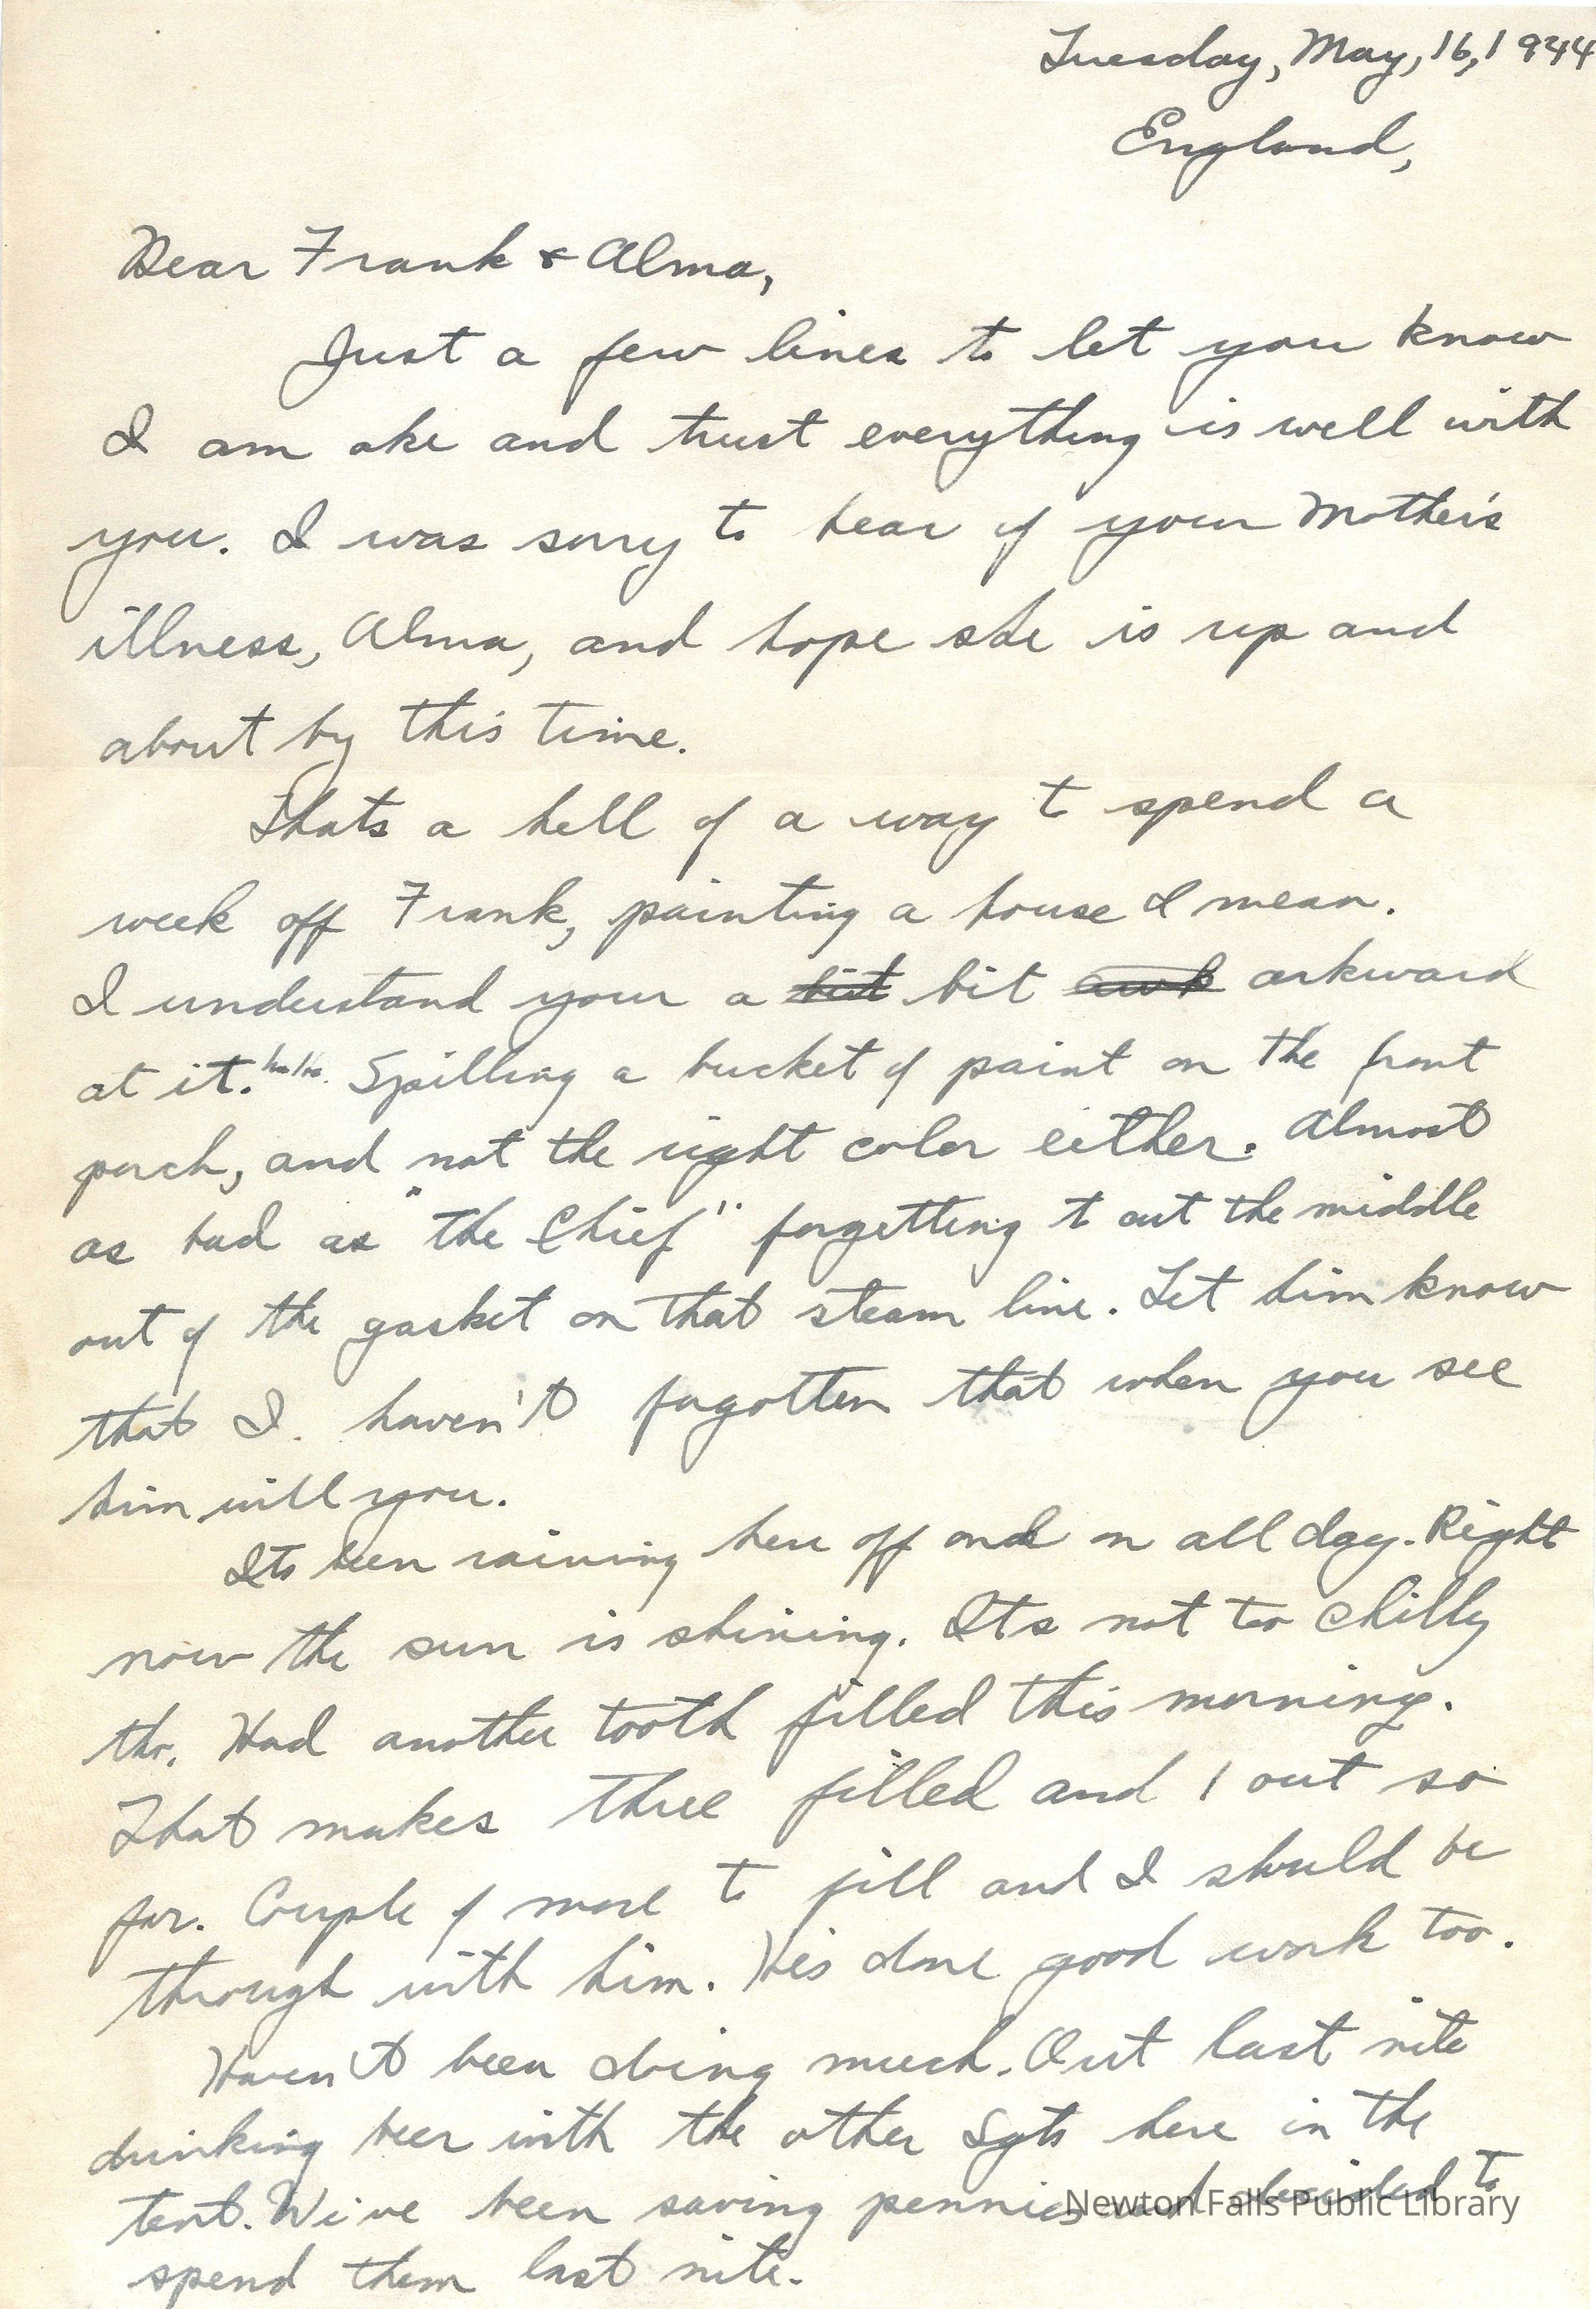 Tuesday, May, 16, 1944
England,
Dear Frank & Alma,
Just a few lines to let you know
I am oke and trust everything is well with
you. I was sorry to hear of your Mother's
illness, Alma, and hope she is up and
about by this time.
Thats a hell of a way to spend a
week off Frank, painting a house I mean.
I understand your a bit bit awk arkward
at it. ha/ha. Spilling a bucket of paint on the front
porch, and not the right color either. Almost
as bad as "the Chief" forgetting to cut the middle
out of the gasket on that steam line. Let him know
that I. haven't forgotten that when you see
him will you.
Its been raining here off and on all day. Right
now the sun is shining. Its not too chilly
tho. Had another tooth filled this morning.
That makes three filled and 1 out so
far. Couple of more to fill and I should be
through with him. He's done good work too.
Haven't been doing much. Out last nite
drinking beer with the other Sgts here in the
tent. We've been saving pennies and decided to
spend them last nite.
Newton Falls Public Library